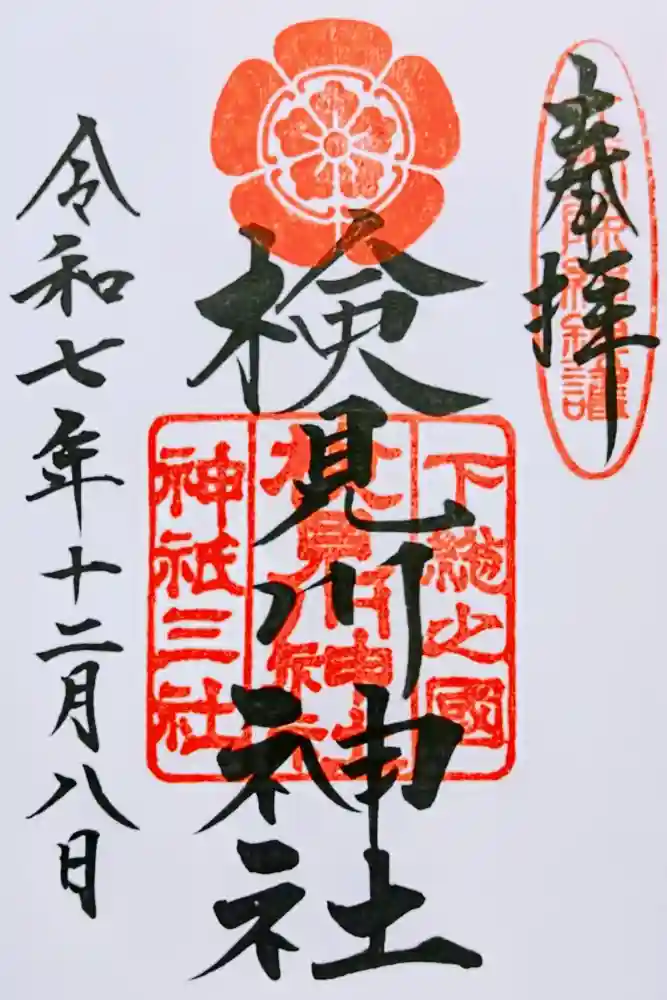 奉拝
下総之國
検見川神社
神祇三社
検見川神社
令和七年十二月八日